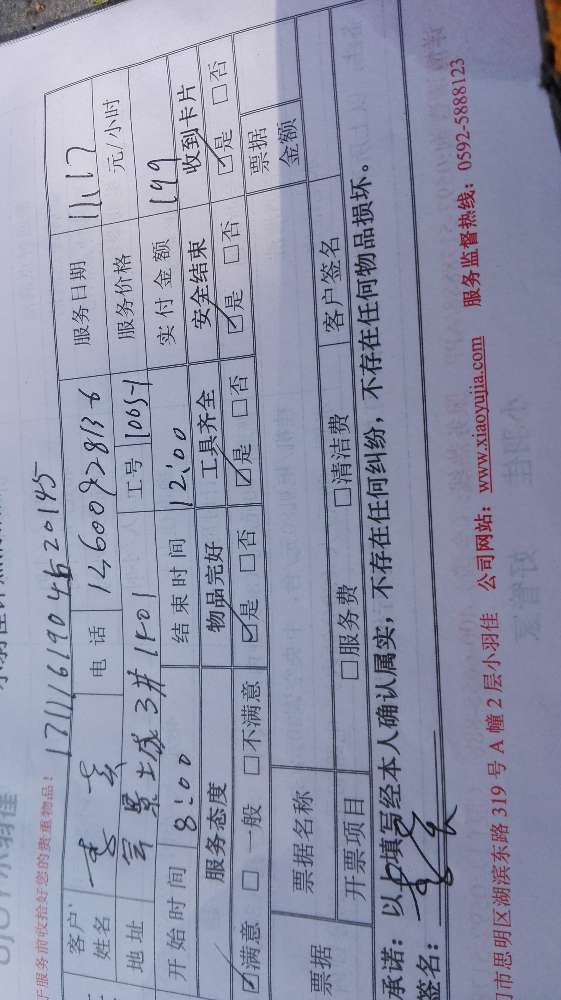 小羽佳
于服务前收拾好您的贵重物品! 1711161904520145
客户姓名 李 电话 14600928136 服务日期 11.17
地址 景上城3# 1401 工号 10651 服务价格 元/小时
开始时间 8:00 结束时间 12:00 实付金额 199
服务态度 物品完好 工具齐全 安全结束 收到卡片
☑满意 □一般 □不满意 ☑是 □否 ☑是 □否 ☑是 □否 ☑是 □否
票据 票据名称 票据金额
开票项目 □服务费 □清洁费 客户签名
承诺:以上填写经本人确认属实,不存在任何纠纷,不存在任何物品损坏。
签名:
市思明区湖滨东路 319 号 A 幢 2 层小羽佳 公司网站:www.xiaoyujia.com 服务监督热线:0592-5888123